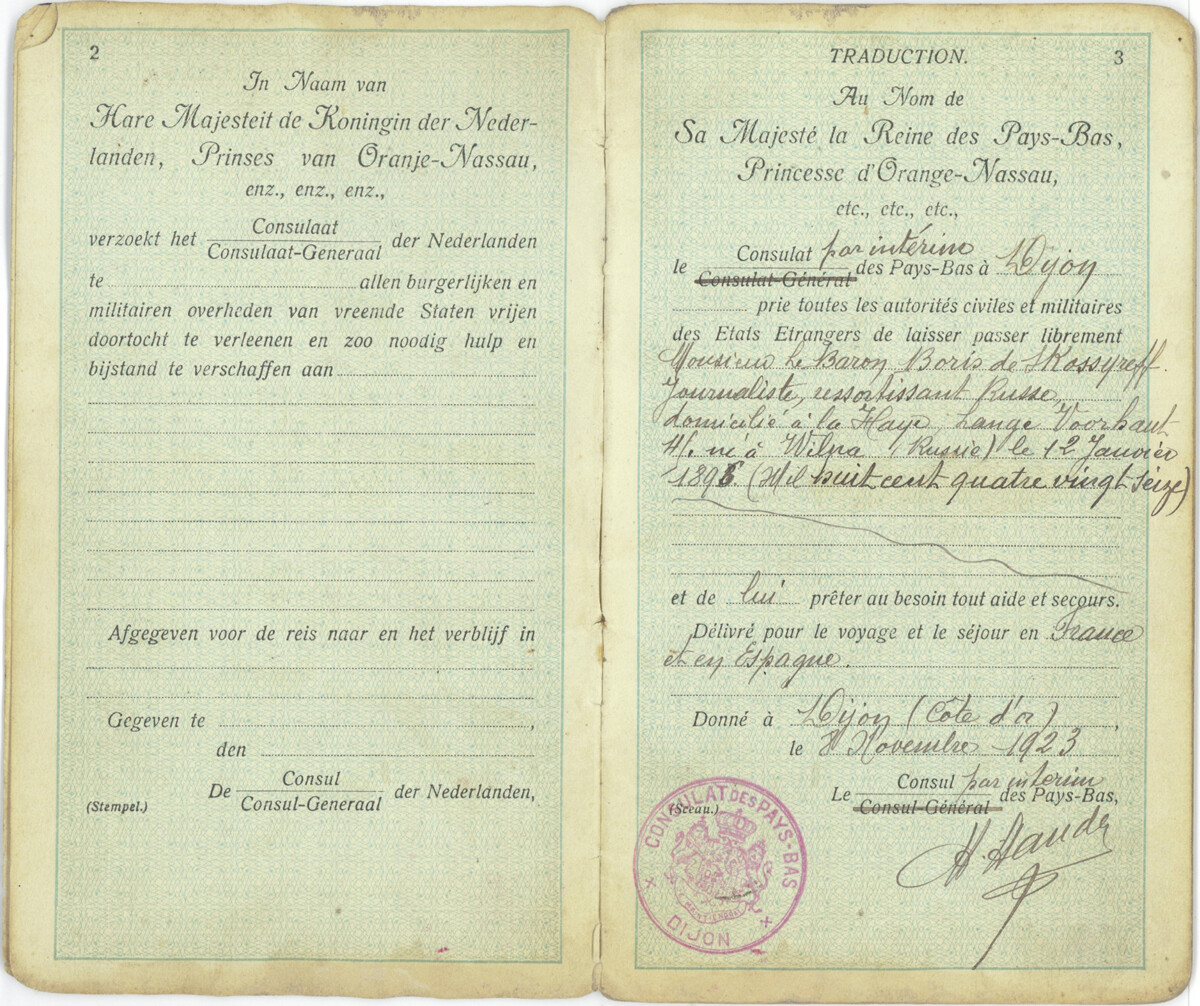 2
In Naam van
Hare Majesteit de Koningin der Neder-
landen, Prinses van Oranje-Nassau,
enz., enz., enz.,
verzoekt het Consulaat
Consulaat-Generaal der Nederlanden
te allen burgerlijken en
militairen overheden van vreemde Staten vrijen
doortocht te verleenen en zoo noodig hulp en
bijstand te verschaffen aan
Afgegeven voor de reis naar en het verblijf in
Gegeven te ,
den
De Consul
Consul-Generaal der Nederlanden,
(Stempel.)
TRADUCTION. 3
Au Nom de
Sa Majesté la Reine des Pays-Bas,
Princesse d'Orange-Nassau,
etc., etc., etc.,
le Consulat par intérim
Consulat-Général des Pays-Bas à Dijon
prie toutes les autorités civiles et militaires
des Etats Etrangers de laisser passer librement
Monsieur le Baron Boris de Skossyreff.
Journaliste, ressortissant Russe,
domicilié à la Haye, Lange Voorhaut
41. né à Wilna (Russie) le 12 Janvier
1896. (Mil huit cent quatre vingt seize)
et de lui prêter au besoin tout aide et secours.
Délivré pour le voyage et le séjour en France
et en Espagne.
Donné à Dijon (Côte d'or) ,
le 8 Novembre 1923
Le Consul par intérim
Consul-Général des Pays-Bas,
(Sceau.)
CONSULAT DES PAYS-BAS
DIJON